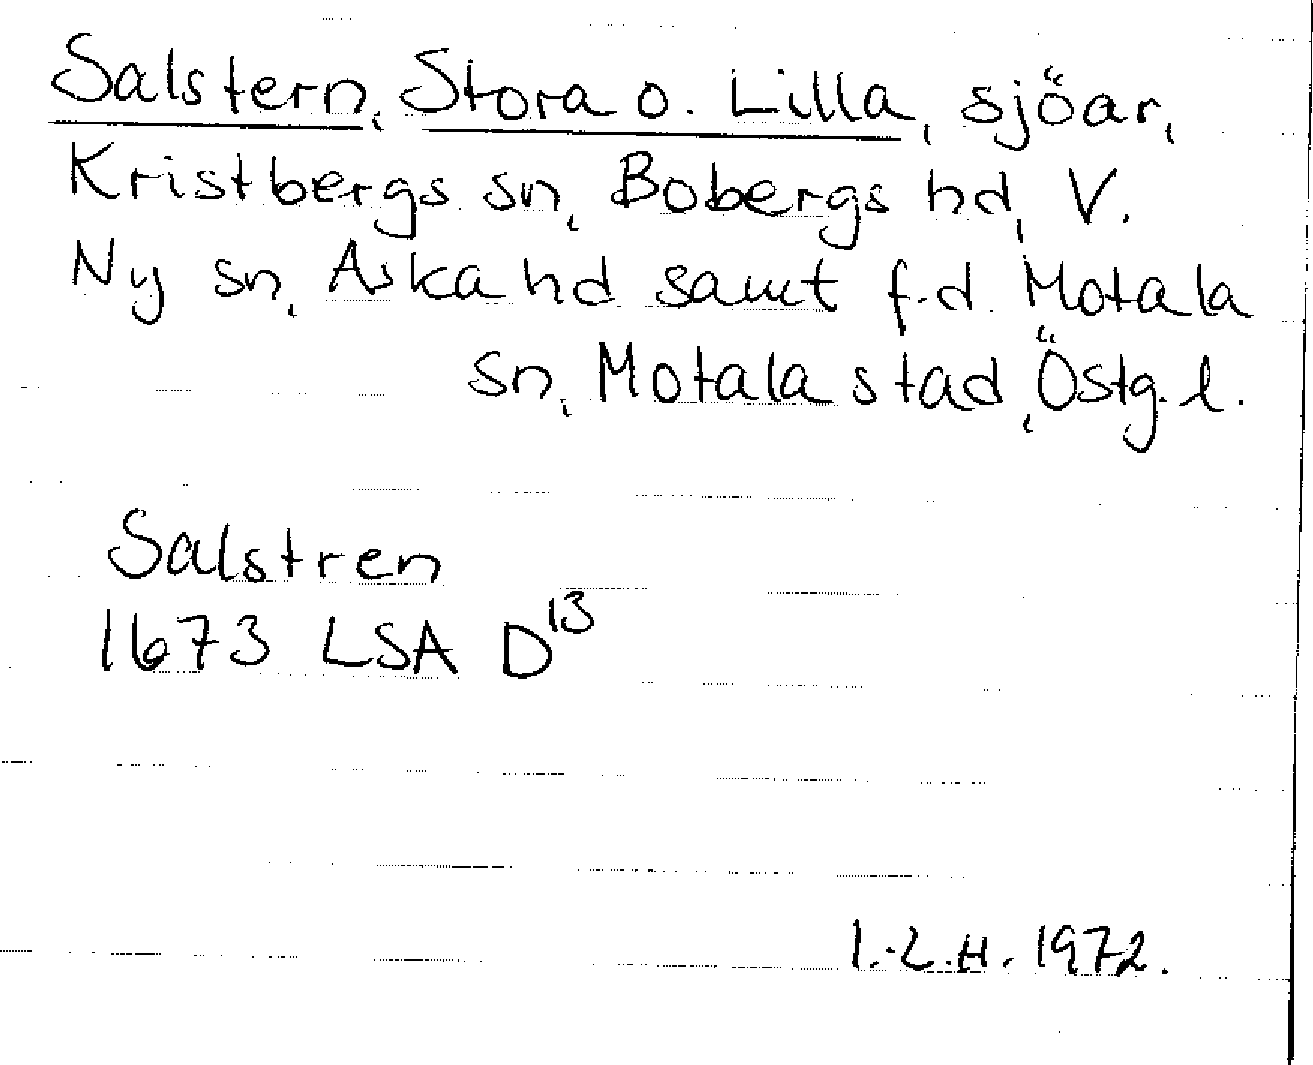 Salstern, Stora o. Lilla, sjöar,
Kristbergs sn, Bobergs hd, V.
Ny sn, Aska hd samt f.d. Motala
sn, Motala stad, Östg. l.
Salstren
1673 LSA D¹³
I.-L.H. 1972.